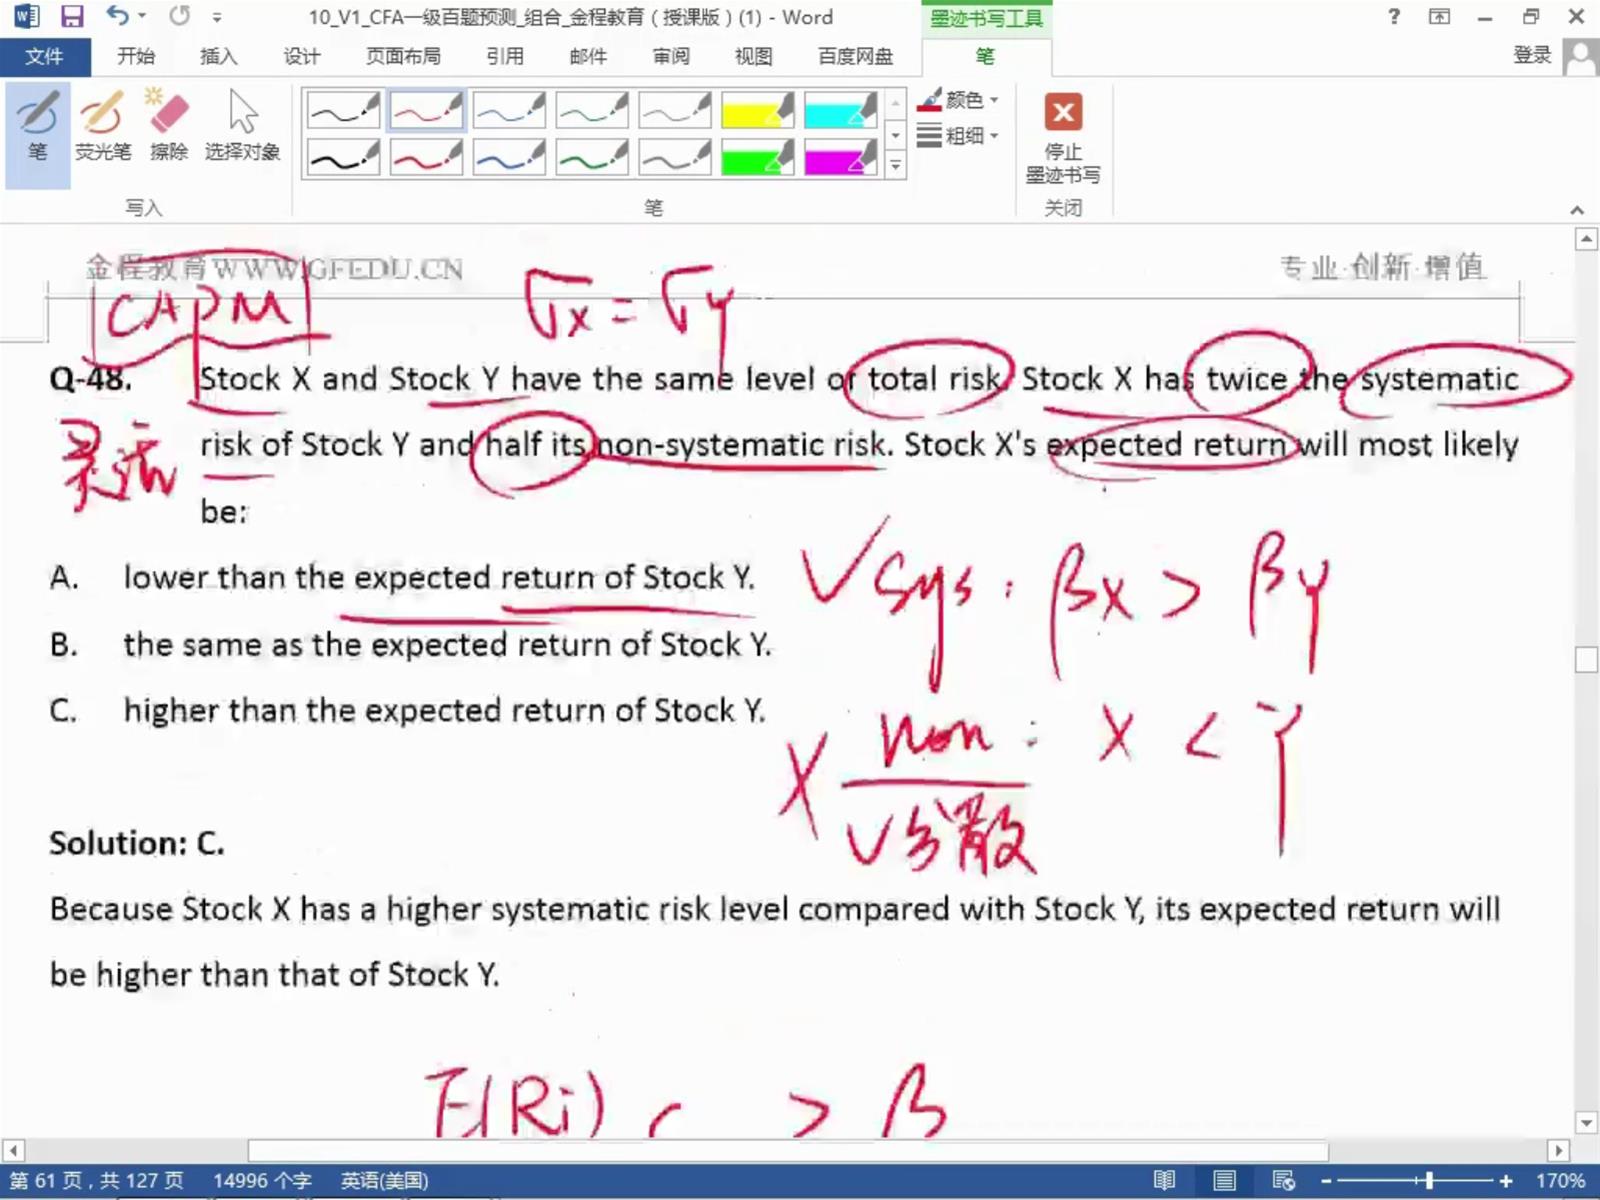 10_V1_CFA一级百题预测_组合_金程教育（授课版）(1) - Word
墨迹书写工具
文件 开始 插入 设计 页面布局 引用 邮件 审阅 视图 百度网盘 笔 登录
笔 荧光笔 擦除 选择对象
颜色
粗细
停止
墨迹书写
写入 笔 关闭
金程教育WWW.GFEDU.CN 专业·创新·增值
CAPM
σx = σy
Q-48. Stock X and Stock Y have the same level of total risk. Stock X has twice the systematic
risk of Stock Y and half its non-systematic risk. Stock X's expected return will most likely
be:
灵活
A. lower than the expected return of Stock Y.
B. the same as the expected return of Stock Y.
C. higher than the expected return of Stock Y.
√ Sys: βx > βy
X non: X < Y
√分散
Solution: C.
Because Stock X has a higher systematic risk level compared with Stock Y, its expected return will
be higher than that of Stock Y.
E(Ri) > β
第 61 页，共 127 页 14996 个字 英语(美国) 170%